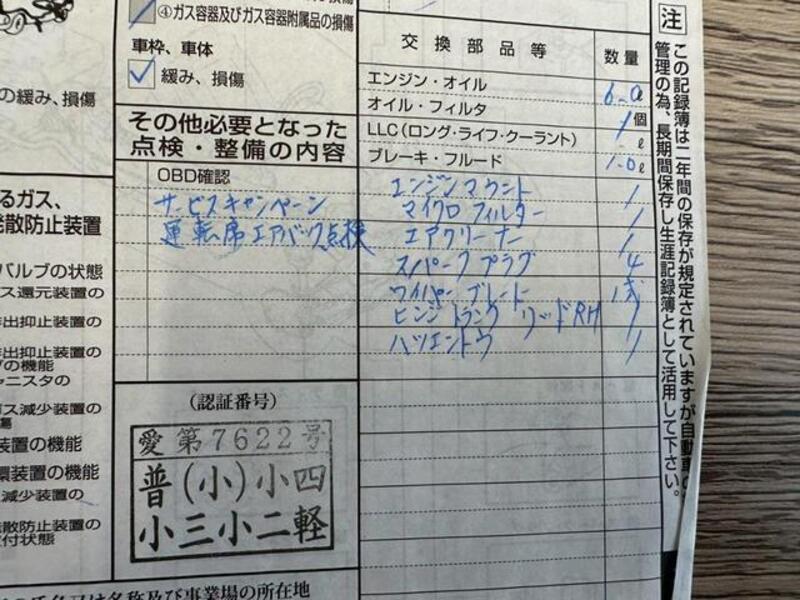 ④ガス容器及びガス容器附属品の損傷
車枠、車体
緩み、損傷
の緩み、損傷
その他必要となった
点検・整備の内容
OBD確認
サービスキャンペーン
運転席エアバック点検
るガス、
発散防止装置
バルブの状態
ス還元装置の
排出抑止装置の
排出抑止装置の
の機能
ャニスタの
ス減少装置の
傷
装置の機能
環装置の機能
減少装置の
発散防止装置の
付状態
(認証番号)
愛第7622号
普(小)小四
小三小二軽
の氏名又は名称及び事業場の所在地
交換部品等 数量
エンジン・オイル 6.0ℓ
オイル・フィルタ 1個
LLC(ロング・ライフ・クーラント) ℓ
ブレーキ・フルード 1.0ℓ
エンジンマウント 1
マイクロフィルター 1
エアクリーナー 1
スパークプラグ 4
ワイパーブレード 1式
ヒンジトランクリッドRH 1
ハツエントウ 1
注
この記録簿は二年間の保存が規定されていますが自動車の
管理の為、長期間保存し生涯記録簿として活用して下さい。